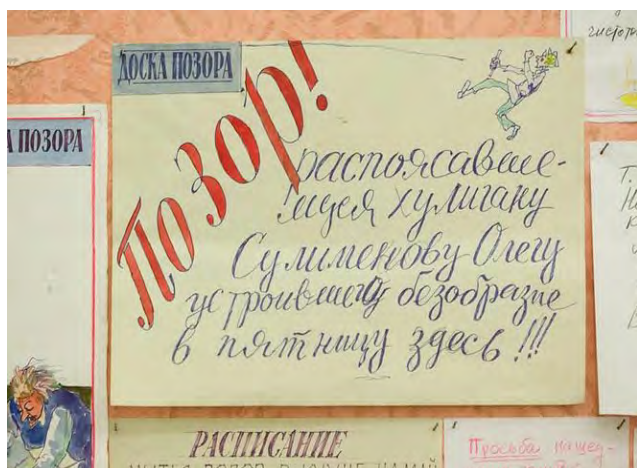 ДОСКА ПОЗОРА
А ПОЗОРА
Позор!
распоясавше-
муся хулигану
Сулименову Олегу
устроившему безобразие
в пятницу здесь!!!
РАСПИСАНИЕ
Просьба нашед-